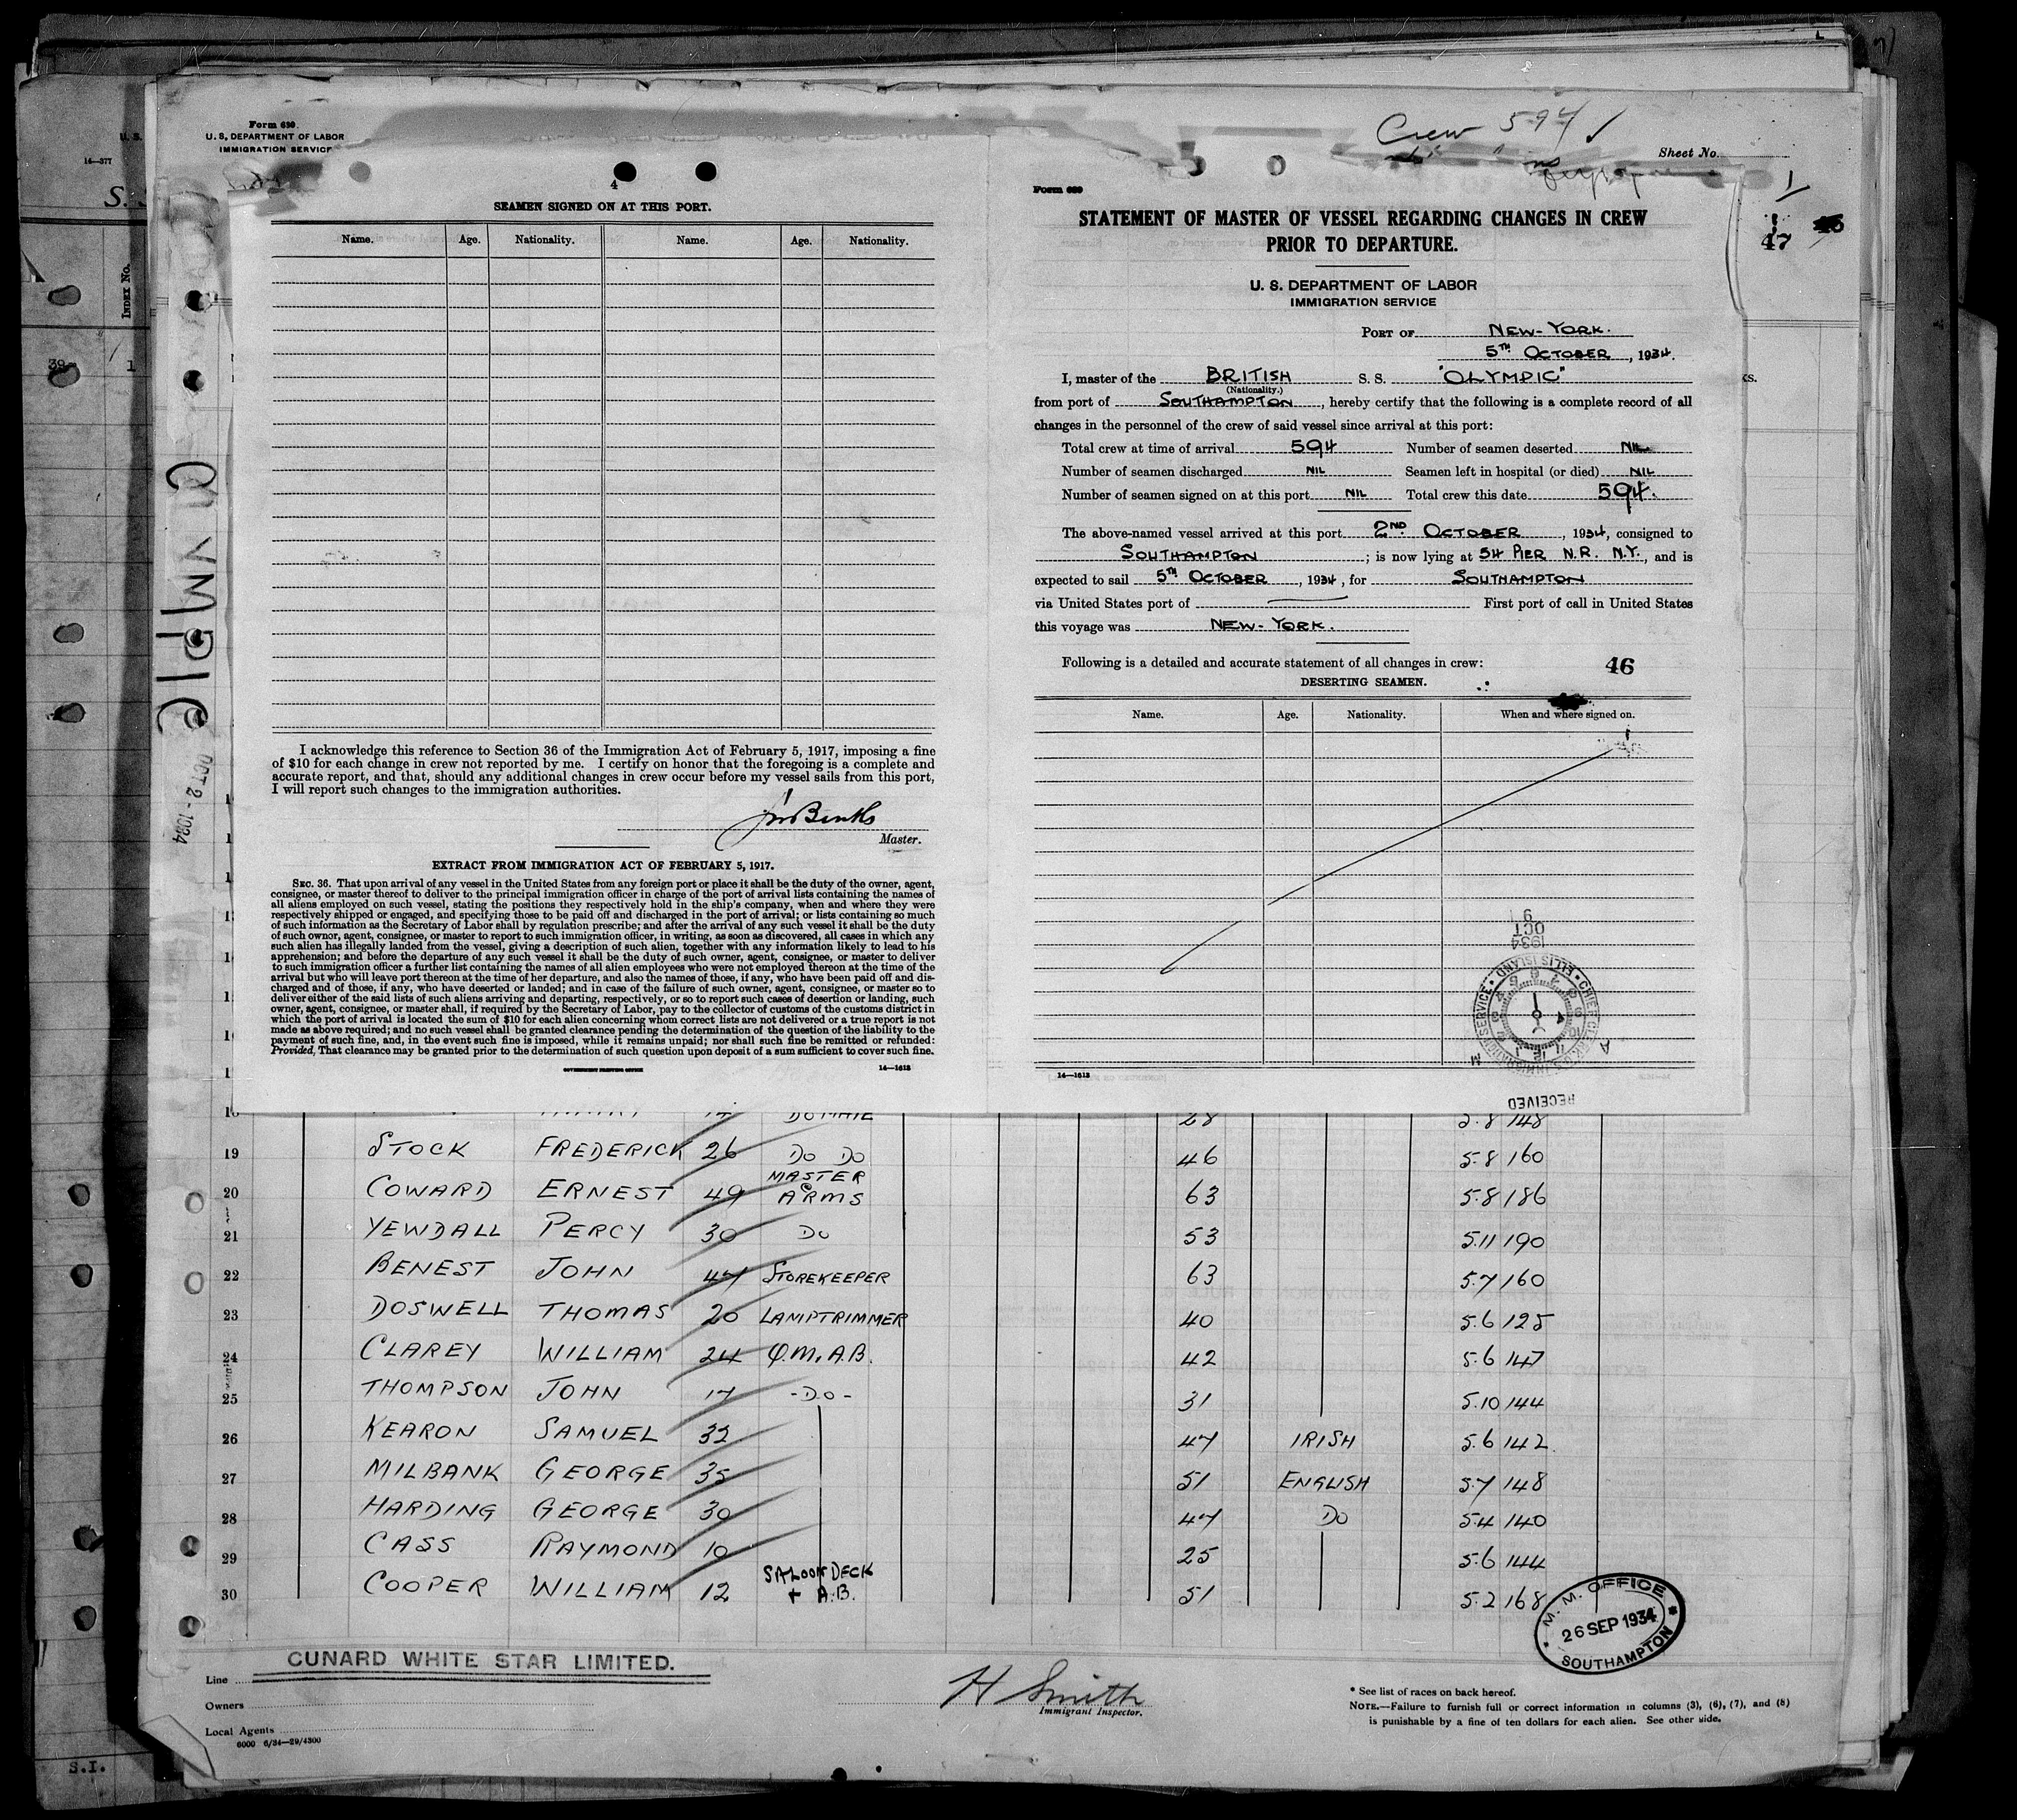 Form 630
U. S. DEPARTMENT OF LABOR
IMMIGRATION SERVICE
Crew 594 ✓
Sheet No.
U. S.
14—377
S. S
INDEX No.
39
1
OLYMPIC
OCT 2 - 1934
1
47
4
SEAMEN SIGNED ON AT THIS PORT.
Name. Age. Nationality. Name. Age. Nationality.
I acknowledge this reference to Section 36 of the Immigration Act of February 5, 1917, imposing a fine
of $10 for each change in crew not reported by me. I certify on honor that the foregoing is a complete and
accurate report, and that, should any additional changes in crew occur before my vessel sails from this port,
I will report such changes to the immigration authorities.
Master.
EXTRACT FROM IMMIGRATION ACT OF FEBRUARY 5, 1917.
SEC. 36. That upon arrival of any vessel in the United States from any foreign port or place it shall be the duty of the owner, agent,
consignee, or master thereof to deliver to the principal immigration officer in charge of the port of arrival lists containing the names of
all aliens employed on such vessel, stating the positions they respectively hold in the ship's company, when and where they were
respectively shipped or engaged, and specifying those to be paid off and discharged in the port of arrival; or lists containing so much
of such information as the Secretary of Labor shall by regulation prescribe; and after the arrival of any such vessel it shall be the duty
of such owner, agent, consignee, or master to report to such immigration officer, in writing, as soon as discovered, all cases in which any
such alien has illegally landed from the vessel, giving a description of such alien, together with any information likely to lead to his
apprehension; and before the departure of any such vessel it shall be the duty of such owner, agent, consignee, or master to deliver
to such immigration officer a further list containing the names of all alien employees who were not employed thereon at the time of the
arrival but who will leave port thereon at the time of her departure, and also the names of those, if any, who have been paid off and dis-
charged and of those, if any, who have deserted or landed; and in case of the failure of such owner, agent, consignee, or master so to
deliver either of the said lists of such aliens arriving and departing, respectively, or so to report such cases of desertion or landing, such
owner, agent, consignee, or master shall, if required by the Secretary of Labor, pay to the collector of customs of the customs district in
which the port of arrival is located the sum of $10 for each alien concerning whom correct lists are not delivered or a true report is not
made as above required; and no such vessel shall be granted clearance pending the determination of the question of the liability to the
payment of such fine, and, in the event such fine is imposed, while it remains unpaid; nor shall such fine be remitted or refunded:
Provided, That clearance may be granted prior to the determination of such question upon deposit of a sum sufficient to cover such fine.
GOVERNMENT PRINTING OFFICE 14—1613
Form 689
STATEMENT OF MASTER OF VESSEL REGARDING CHANGES IN CREW
PRIOR TO DEPARTURE.
U. S. DEPARTMENT OF LABOR
IMMIGRATION SERVICE
PORT OF NEW-YORK.
5TH OCTOBER, 1934.
I, master of the BRITISH S. S. "OLYMPIC"
(Nationality.)
from port of SOUTHAMPTON, hereby certify that the following is a complete record of all
changes in the personnel of the crew of said vessel since arrival at this port:
Total crew at time of arrival 594 Number of seamen deserted NIL
Number of seamen discharged NIL Seamen left in hospital (or died) NIL
Number of seamen signed on at this port NIL Total crew this date 594.
The above-named vessel arrived at this port 2ND OCTOBER, 1934, consigned to
SOUTHAMPTON; is now lying at 54 PIER N.R. N.Y., and is
expected to sail 5TH OCTOBER, 1934, for SOUTHAMPTON
via United States port of First port of call in United States
this voyage was NEW-YORK.
Following is a detailed and accurate statement of all changes in crew: 46
DESERTING SEAMEN.
Name. Age. Nationality. When and where signed on.
RECEIVED
CHIEF CLERK U.S. IMMIGRATION SERVICE • ELLIS ISLAND
1934 OCT
14—1613
28 5.8 148
19 STOCK FREDERICK 26 DO DO 46 5.8 160
20 COWARD ERNEST 49 MASTER @ ARMS 63 5.8 186
21 YEWDALL PERCY 30 DO 53 5.11 190
22 BENEST JOHN 47 STOREKEEPER 63 5.7 160
23 DOSWELL THOMAS 20 LAMPTRIMMER 40 5.6 125
24 CLAREY WILLIAM 24 Q.M. A.B. 42 5.6 147
25 THOMPSON JOHN 17 -DO- 31 5.10 144
26 KEARON SAMUEL 32 47 IRISH 5.6 142
27 MILBANK GEORGE 35 51 ENGLISH 5.7 148
28 HARDING GEORGE 30 47 DO 5.4 140
29 CASS RAYMOND 10 25 5.6 144
30 COOPER WILLIAM 12 SALOON DECK + A.B. 51 5.2 168
M. M. OFFICE
26 SEP 1934
SOUTHAMPTON
Line CUNARD WHITE STAR LIMITED.
Owners
Local Agents
6000 6/34—29/4300
H Smith
Immigrant Inspector.
* See list of races on back hereof.
NOTE.—Failure to furnish full or correct information in columns (3), (6), (7), and (8)
is punishable by a fine of ten dollars for each alien. See other side.
S.I.